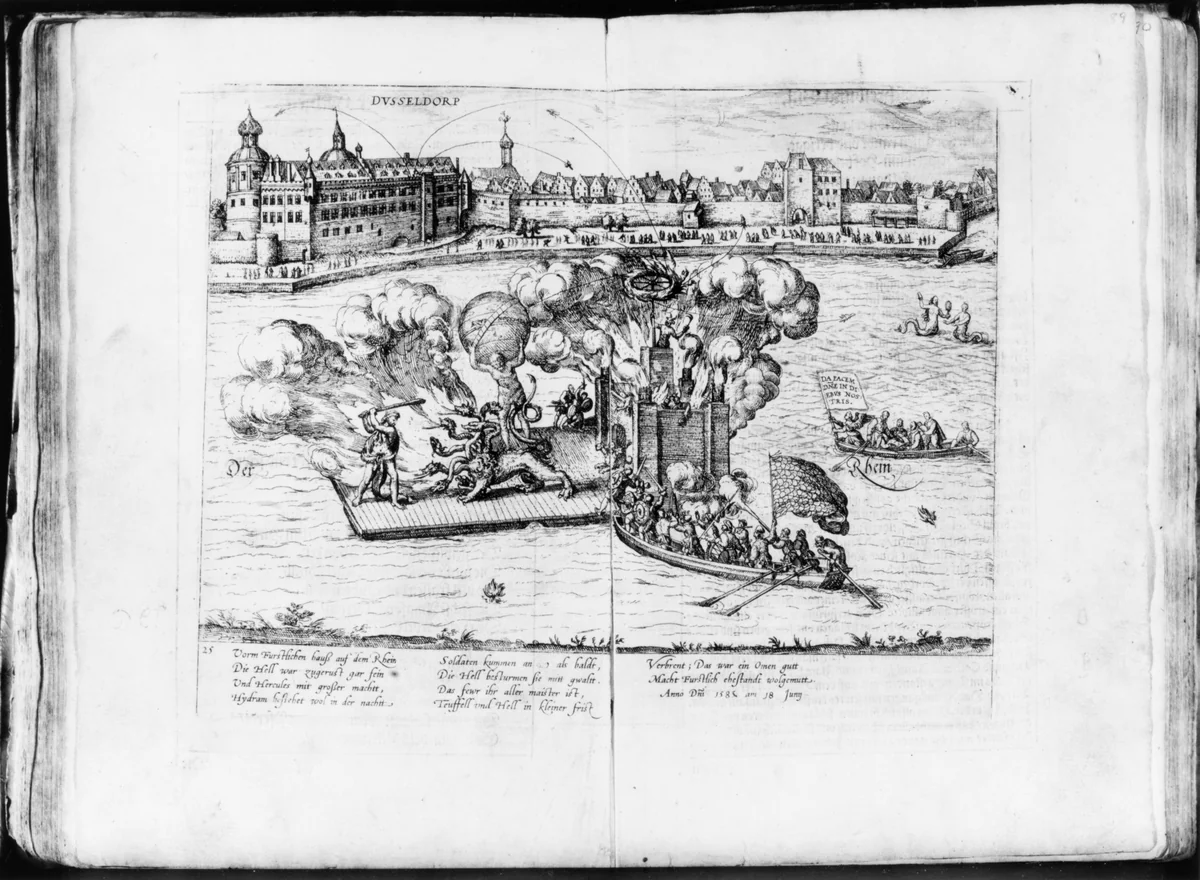 89 90
DVSSELDORP
DA PACEM
DÑE IN DI
EBVS NOS
TRIS.
Der Rhein
25
Vorm Furstlichen hauß auf dem Rhein
Die Hell war zugerust gar fein
Und Hercules mit großer machtt,
Hydram bestehet wol in der nachtt
Soldaten kummen an als baldt,
Die Hell besturmen sie mit gwalt.
Das fewr ihr aller maister ist,
Teuffell und Hell in kleiner frist
Verbrent; Das war ein Omen gutt
Macht Furstlich ehestandt wolgemutt
Anno Dñi 1585 am 18 Junÿ